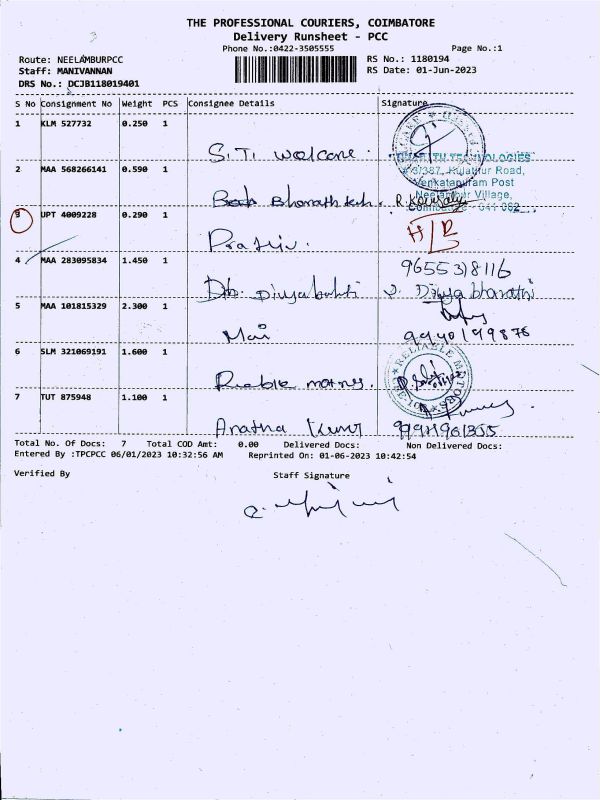 THE PROFESSIONAL COURIERS, COIMBATORE
Delivery Runsheet - PCC
Phone No.:0422-3505555 Page No.:1
Route: NEELAMBURPCC RS No.: 1180194
Staff: MANIVANNAN RS Date: 01-Jun-2023
DRS No.: DCJB118019401
S No Consignment No Weight PCS Consignee Details Signature
1 KLM 527732 0.250 1
S.T. welcare.
2 MAA 568266141 0.590 1
Bharath R.
3 UPT 4009228 0.290 1
Prativ. H/R
4 MAA 283095834 1.450 1 9655318116
Divyabharathi
5 MAA 101815329 2.300 1
Mai 9940199876
6 SLM 321069191 1.600 1
RELIABLE MOTORS
7 TUT 875948 1.100 1
Anatha Kumar
Total No. Of Docs: 7 Total COD Amt: 0.00 Delivered Docs: Non Delivered Docs:
Entered By :TPCPCC 06/01/2023 10:32:56 AM Reprinted On: 01-06-2023 10:42:54
Verified By Staff Signature